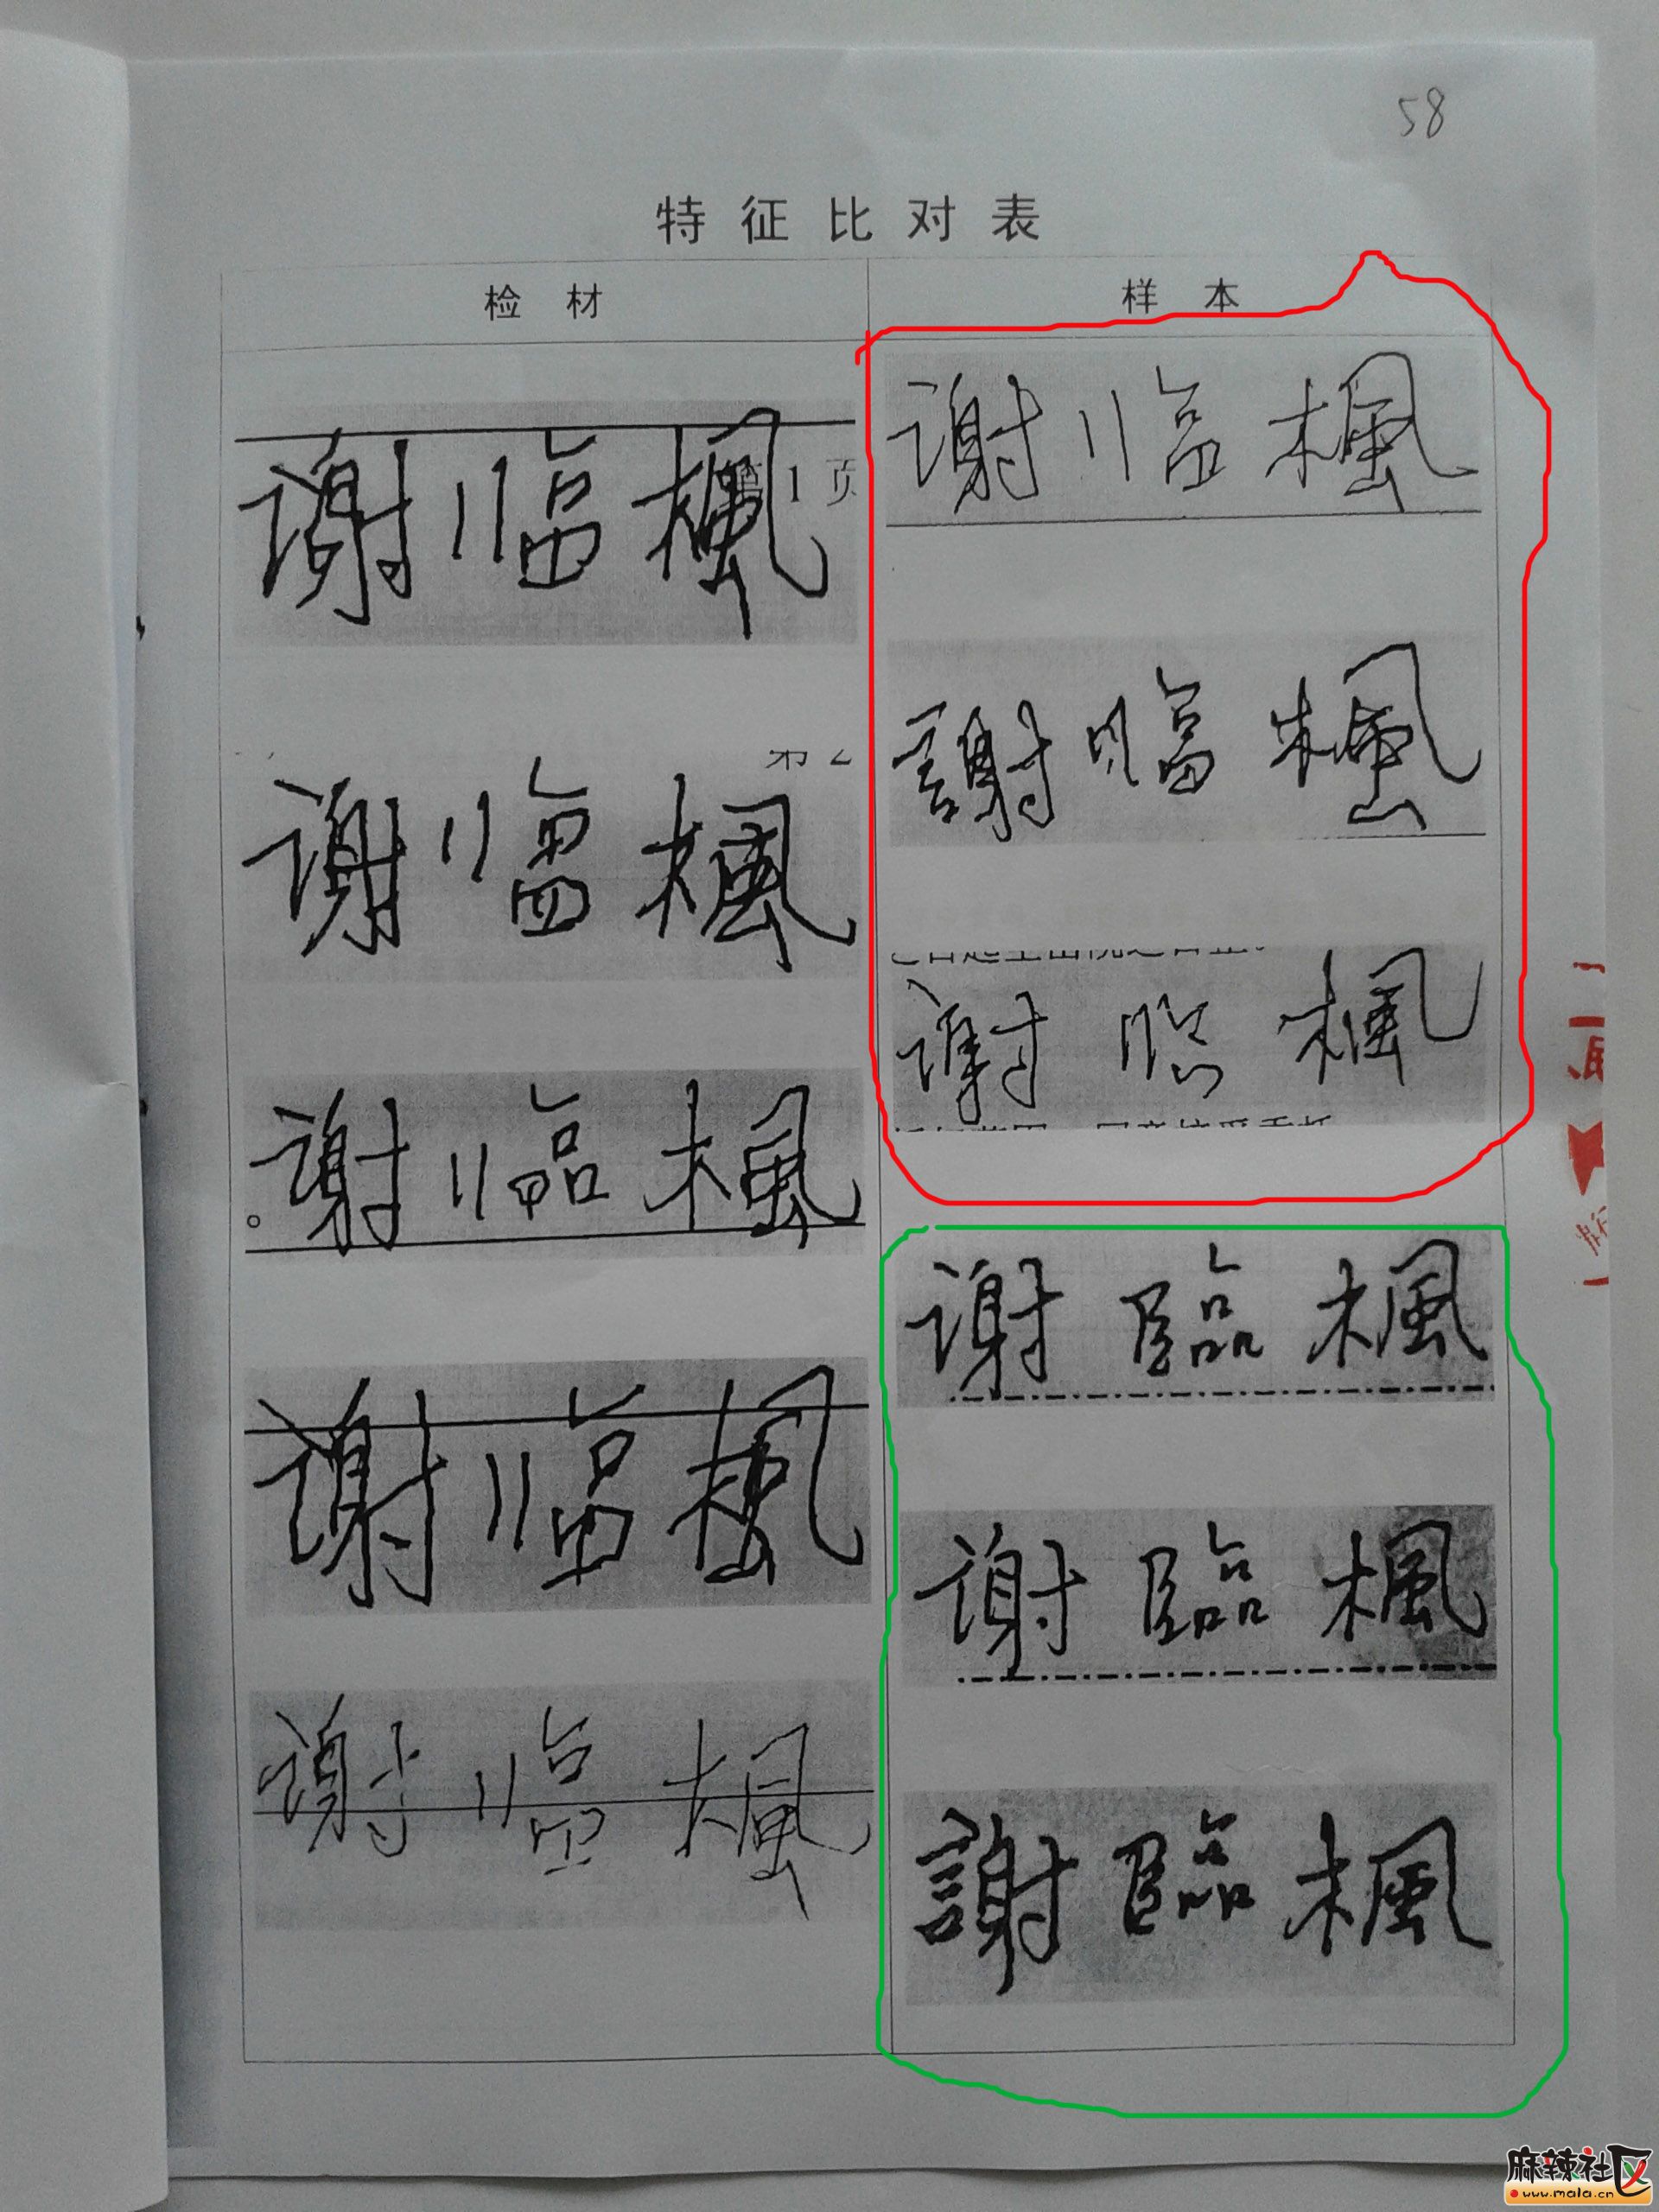 58
特征比对表
检材
样本
谢临楓
第1页
谢临楓
谢临楓
謝临楓
谢临楓
谢临楓
谢临楓
谢臨楓
谢临楓
谢臨楓
谢临楓
謝臨楓
麻辣社区
www.mala.cn